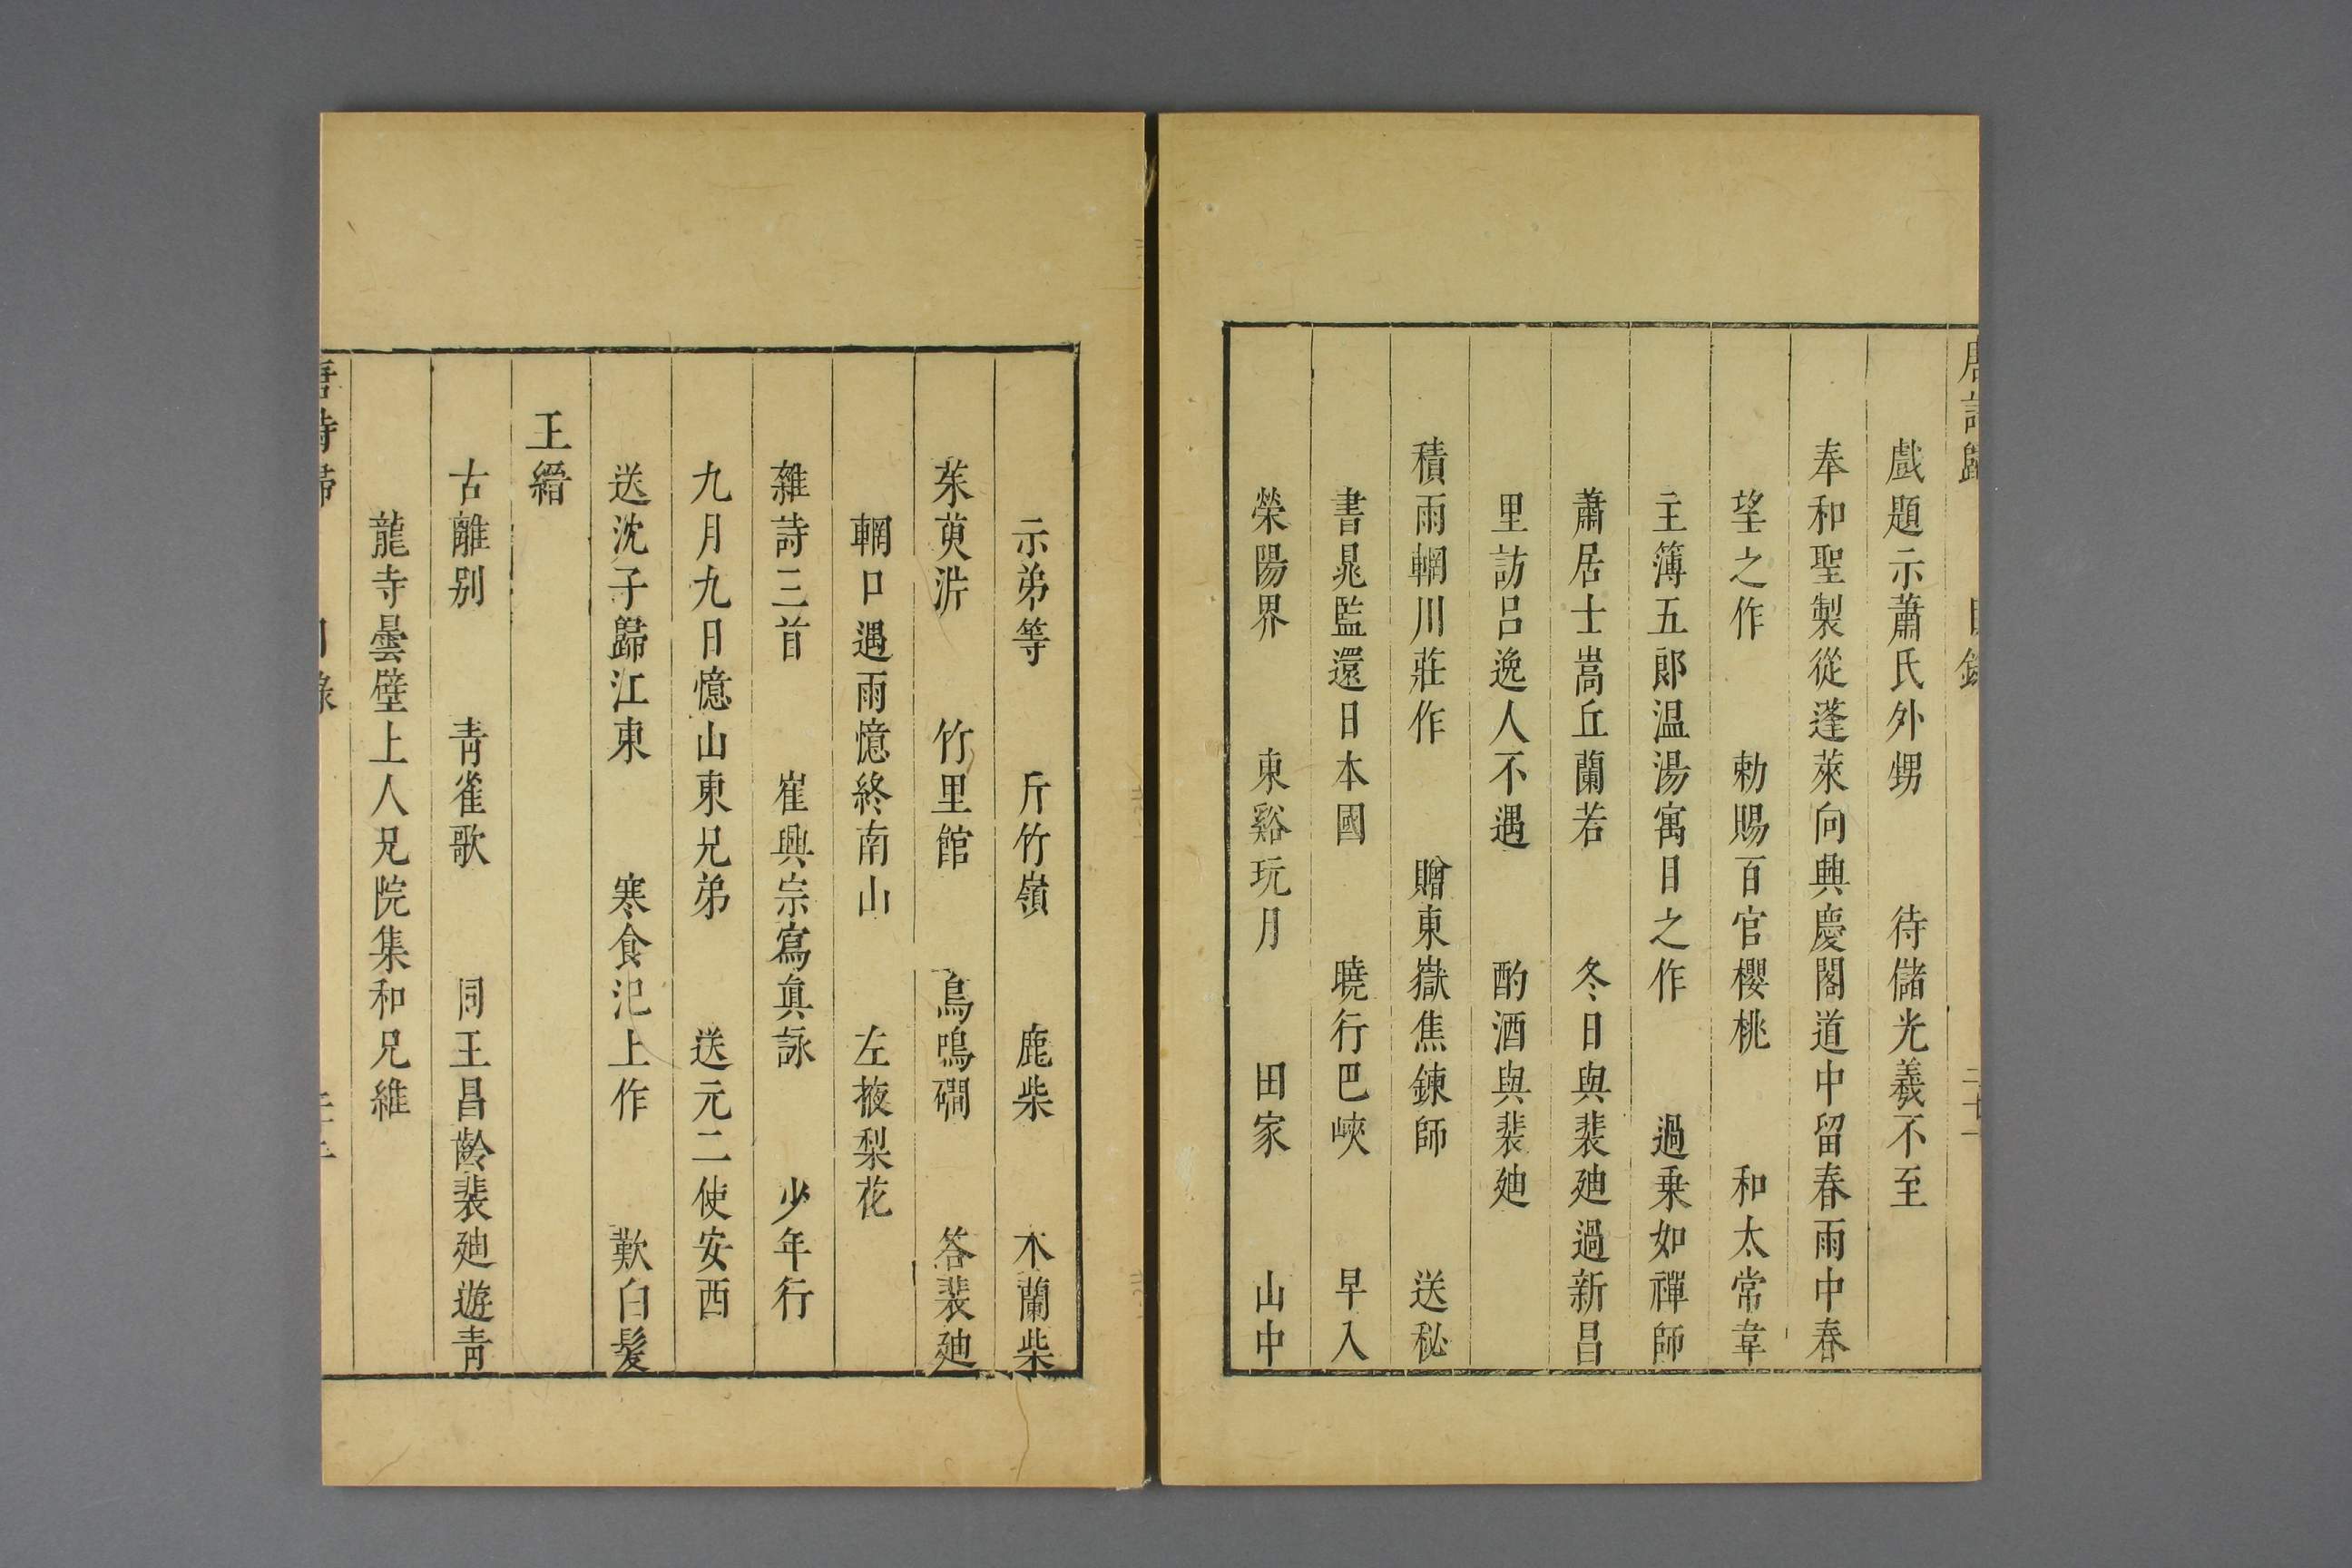 唐詩歸 目錄 二十一
戲題示蕭氏外甥 待儲光羲不至
奉和聖製從蓬萊向興慶閣道中留春雨中春
望之作 勅賜百官櫻桃 和太常韋
主簿五郎温湯寓目之作 過乗如禪師
蕭居士嵩丘蘭若 冬日與裴廸過新昌
里訪呂逸人不遇 酌酒與裴廸
積雨輞川莊作 贈東嶽焦鍊師 送秘
書晁監還日本國 曉行巴峽 早入
滎陽界 東谿玩月 田家 山中
示弟等 斤竹嶺 鹿柴 木蘭柴
茱萸沜 竹里館 鳥鳴磵 答裴廸
輞口遇雨憶終南山 左掖梨花
雜詩三首 崔興宗寫真詠 少年行
九月九日憶山東兄弟 送元二使安西
送沈子歸江東 寒食汜上作 歎白髪
王縉
古離别 青雀歌 同王昌齡裴廸遊青
龍寺曇壁上人兄院集和兄維
唐詩歸 目錄